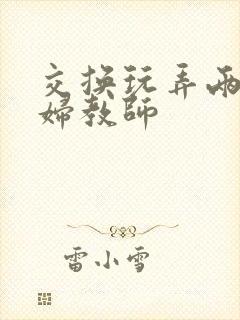 交換玩弄兩
婦教師
雷小雪